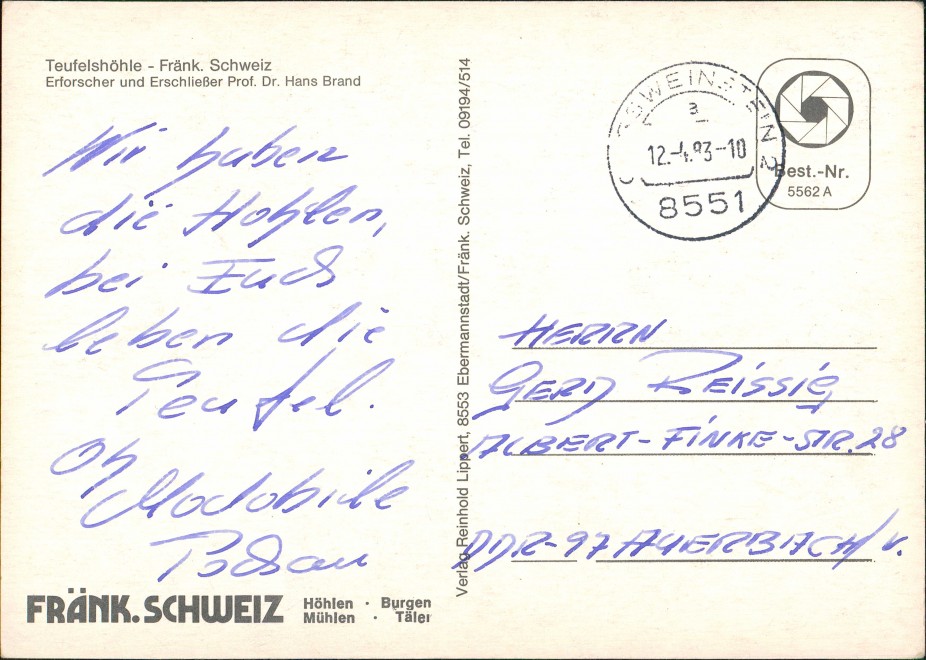 Teufelshöhle - Fränk. Schweiz
Erforscher und Erschließer Prof. Dr. Hans Brand
Wir haben
die Höhlen,
bei Euch
leben die
Teufel.
FRÄNK. SCHWEIZ
Höhlen · Burgen
Mühlen · Täler
Verlag Reinhold Lippert, 8553 Ebermannstadt/Fränk. Schweiz, Tel. 09194/514
GSWEINSTEIN 2
a
12.-4.83-10
8551
Best.-Nr.
5562 A
HERRN
GERD REISSIG
ALBERT-FINKE-STR. 28
DDR-97 AUERBACH/V.